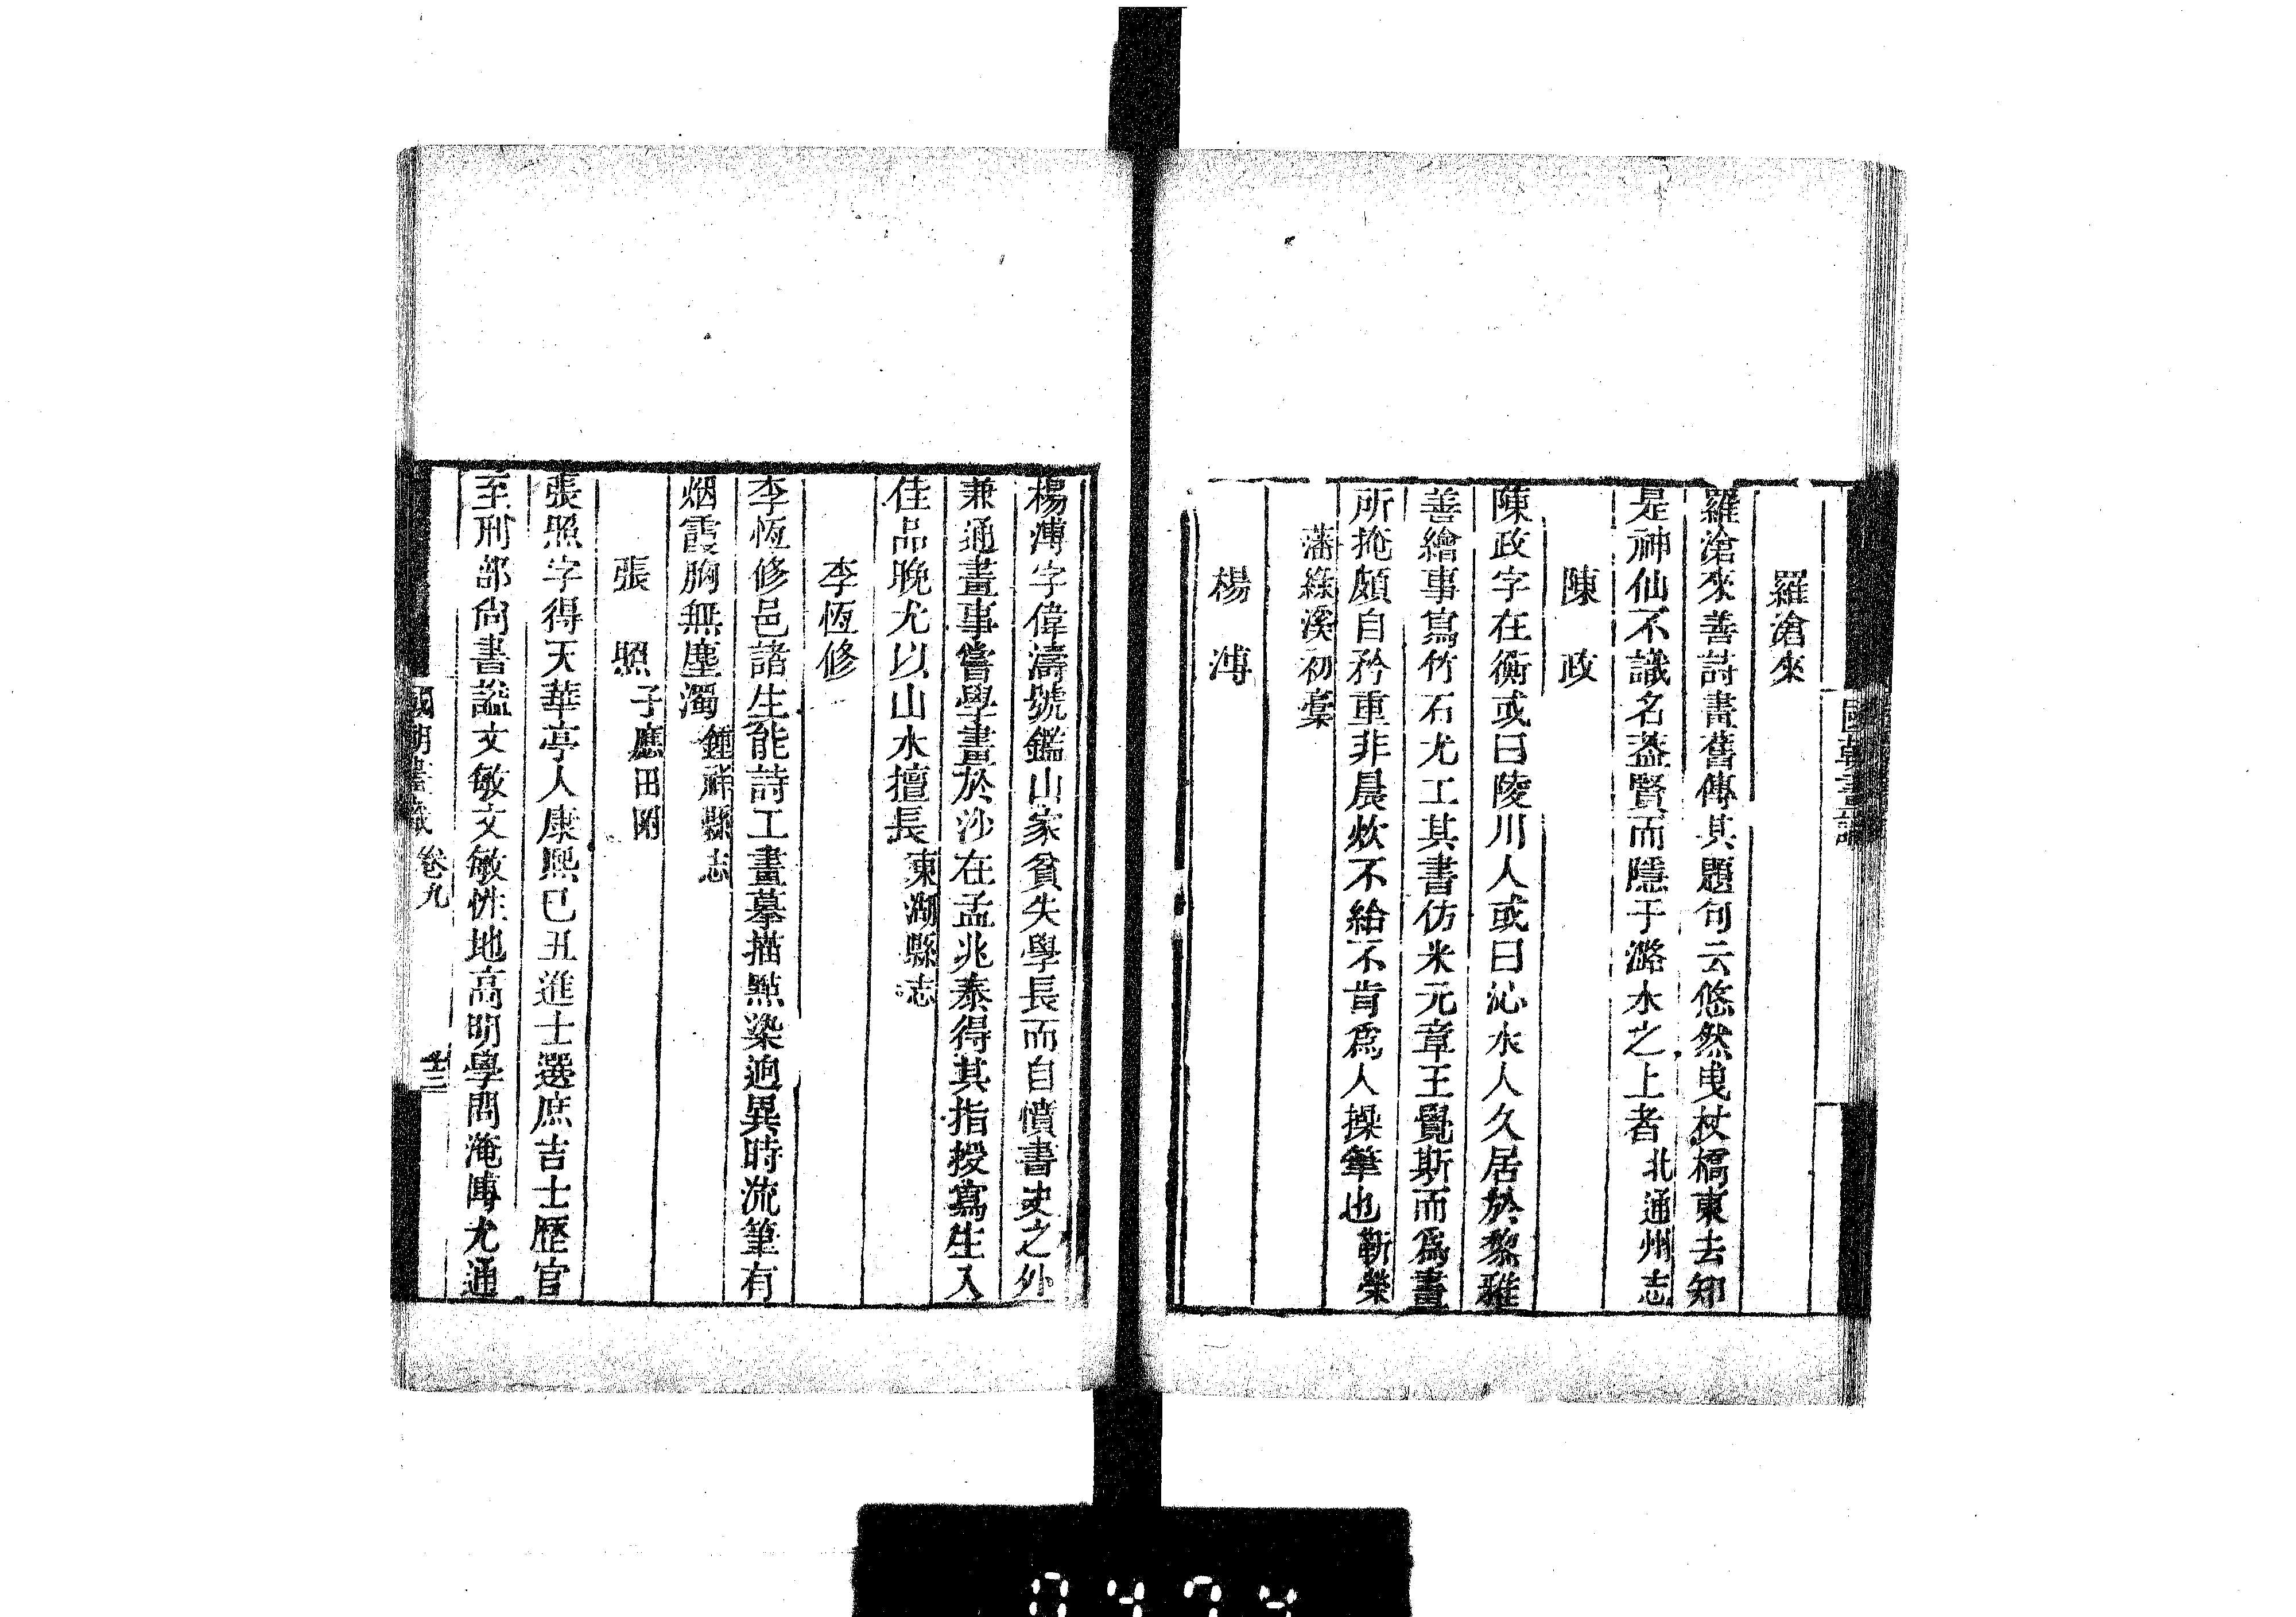 羅滄來
羅滄來善詩書舊傳其題句云悠然曳杖橋東去知
是神仙不識名葢賢而隱于潞水之上者北通州志
陳政
陳政字在衡或曰陵川人或曰沁水人久居於黎雅
善繪事寫竹石尤工其書仿米元章王覺斯而爲畫
所掩頗自矜重非晨炊不給不肯爲人操筆也靳榮
藩綠溪初稾
楊溥
楊溥字偉濤號鑑山家貧失學長而自憤書史之外
兼通畫事嘗學畫於沙在孟兆泰得其指授寫生入
佳品晚尤以山水擅長東湖縣志
李恆修
李恆修邑諸生能詩工畫摹描㸃染逈異時流筆有
烟霞胸無塵濁鍾祥縣志
張照子應田附
張照字得天華亭人康熙己丑進士選庶吉士歷官
至刑部尙書諡文敏文敏性地高明學問淹博尤通
國朝書識 卷九 十三